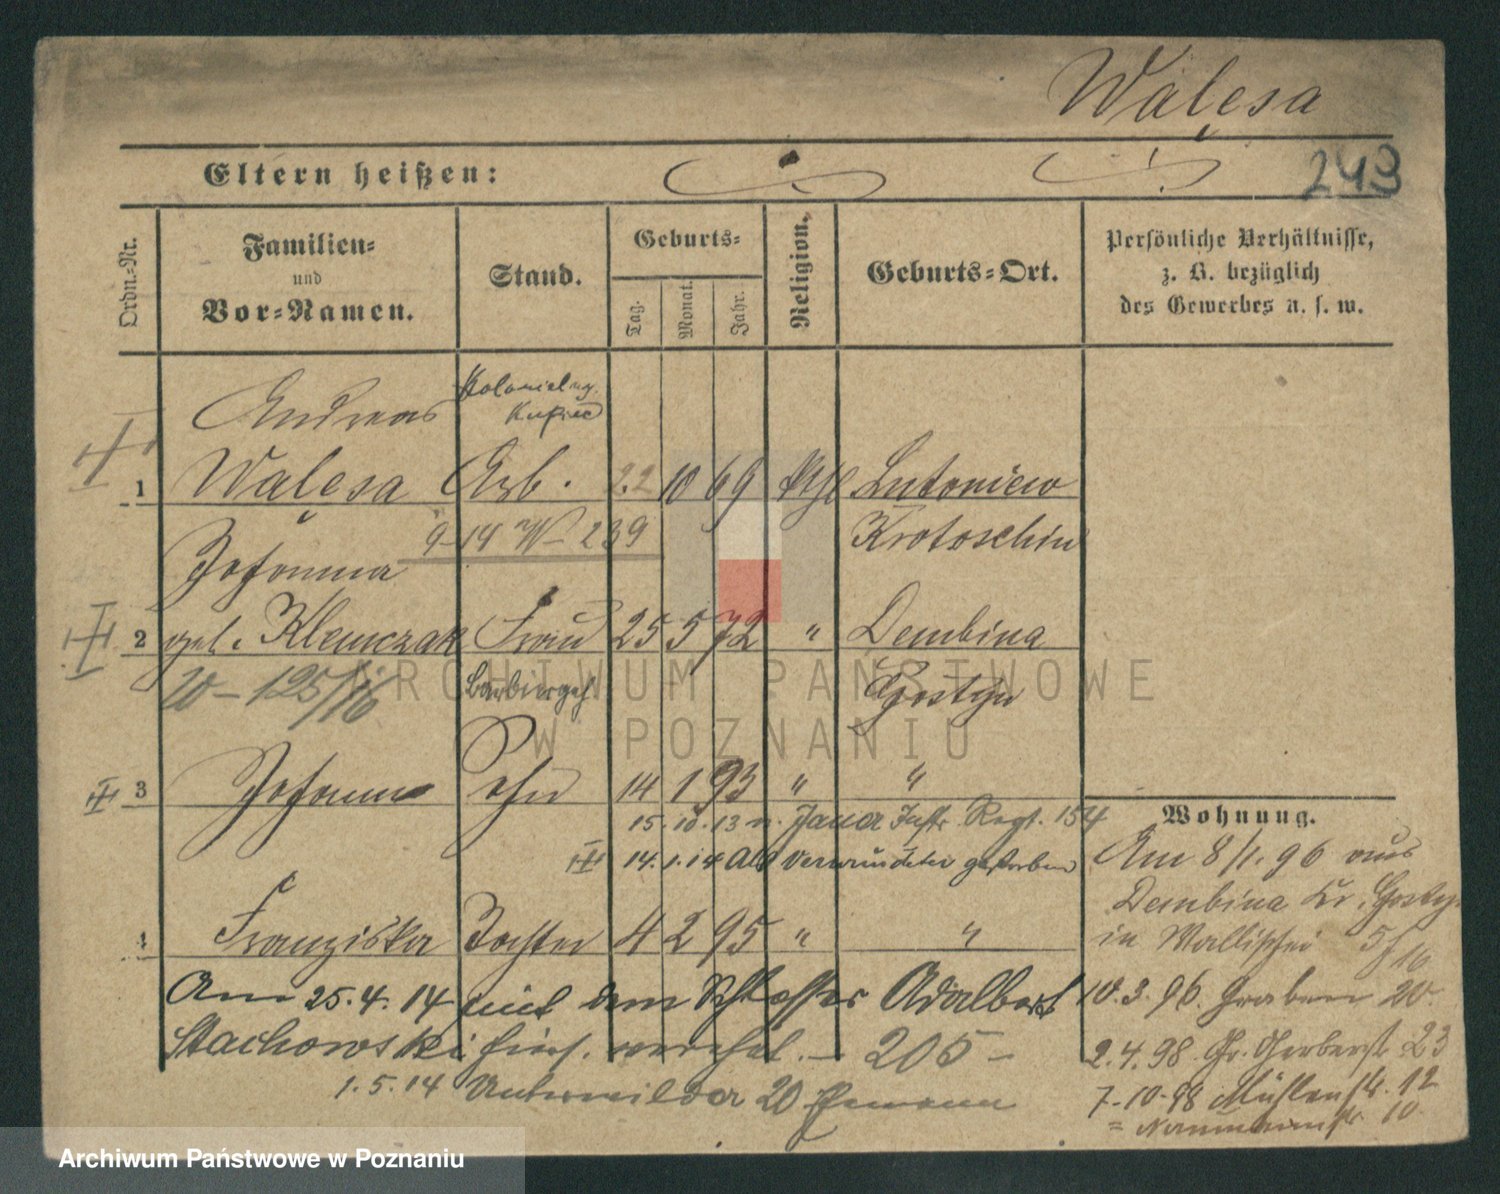 Wałęsa
243
Eltern heißen:
Ordn.-Nr.
Familien-
und
Vor-Namen.
Stand.
Geburts-
Tag.
Monat.
Jahr.
Religion.
Geburts-Ort.
Persönliche Verhältnisse,
z. B. bezüglich
des Gewerbes u. s. w.
Andreas
Kupiec
1 Wałęsa Arb. 22 10 69 kthl Lutoniew
9-14 W- 239 Krotoschin
Johanna
2 geb. Klemczak Frau 25 5 72 " Dembina
20 - 125/16 Barbiergeh. Gostyn
3 Johann Sohn 14 1 93 " "
15.10.13 n. Jauer Inftr. Regt. 154
14.1.14 Als verwundeter gestorben
4 Franziska Tochter 4 2 95 " "
Am 25.4.14 mit dem Schlosser Adalbert
Stachowski hies. verehel. - 205 -
1.5.14 Unterwilda 20 Ehemann
Wohnung.
Am 8/1. 96 aus
Dembina Kr. Gostyn
in Wallischei 5/16
10.3.96. Graben 20.
2.4.98. Gr. Gerberstr. 23
7.10.98 Mühlenstr. 12
= Naumannstr. 10
ARCHIWUM PAŃSTWOWE
W POZNANIU
Archiwum Państwowe w Poznaniu